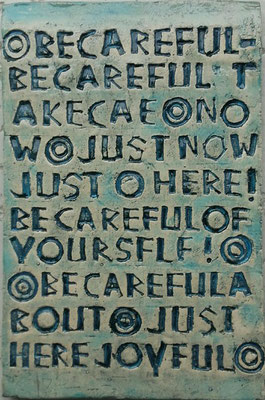 ◎BECAREFUL-
BECAREFUL'T
AKECAE◎NO
W◎JUSTNOW
JUSTOHERE!
BECAREFULOF
YOURSFLF!◎
◎BECAREFULA
BOUT◎JUST
HEREJOYFUL◎